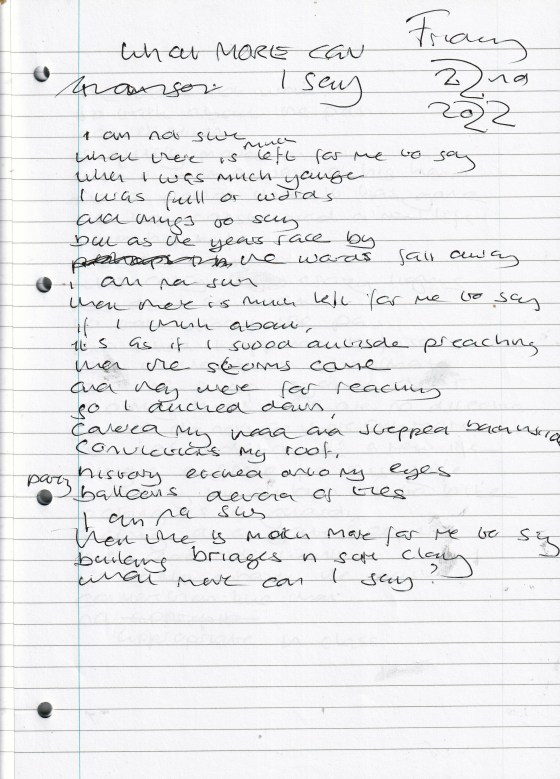 WHAT MORE CAN
I say
Friday
22nd
2022
I am not sure
what there is much left for me to say
when I was much younger
I was full of words
and things to say
but as the years race by
the words fall away
I am not sure
that there is much left for me to say
if I think about,
it's as if I stood outside preaching
when the storms came
and they were far reaching
so I ducked down,
Covered my head and stepped backwards
Convictions my roof,
history etched onto my eyes
party balloons devoid of ties
I am not sure
there is much more for me to say
building bridges in soft clay
what more can I say?